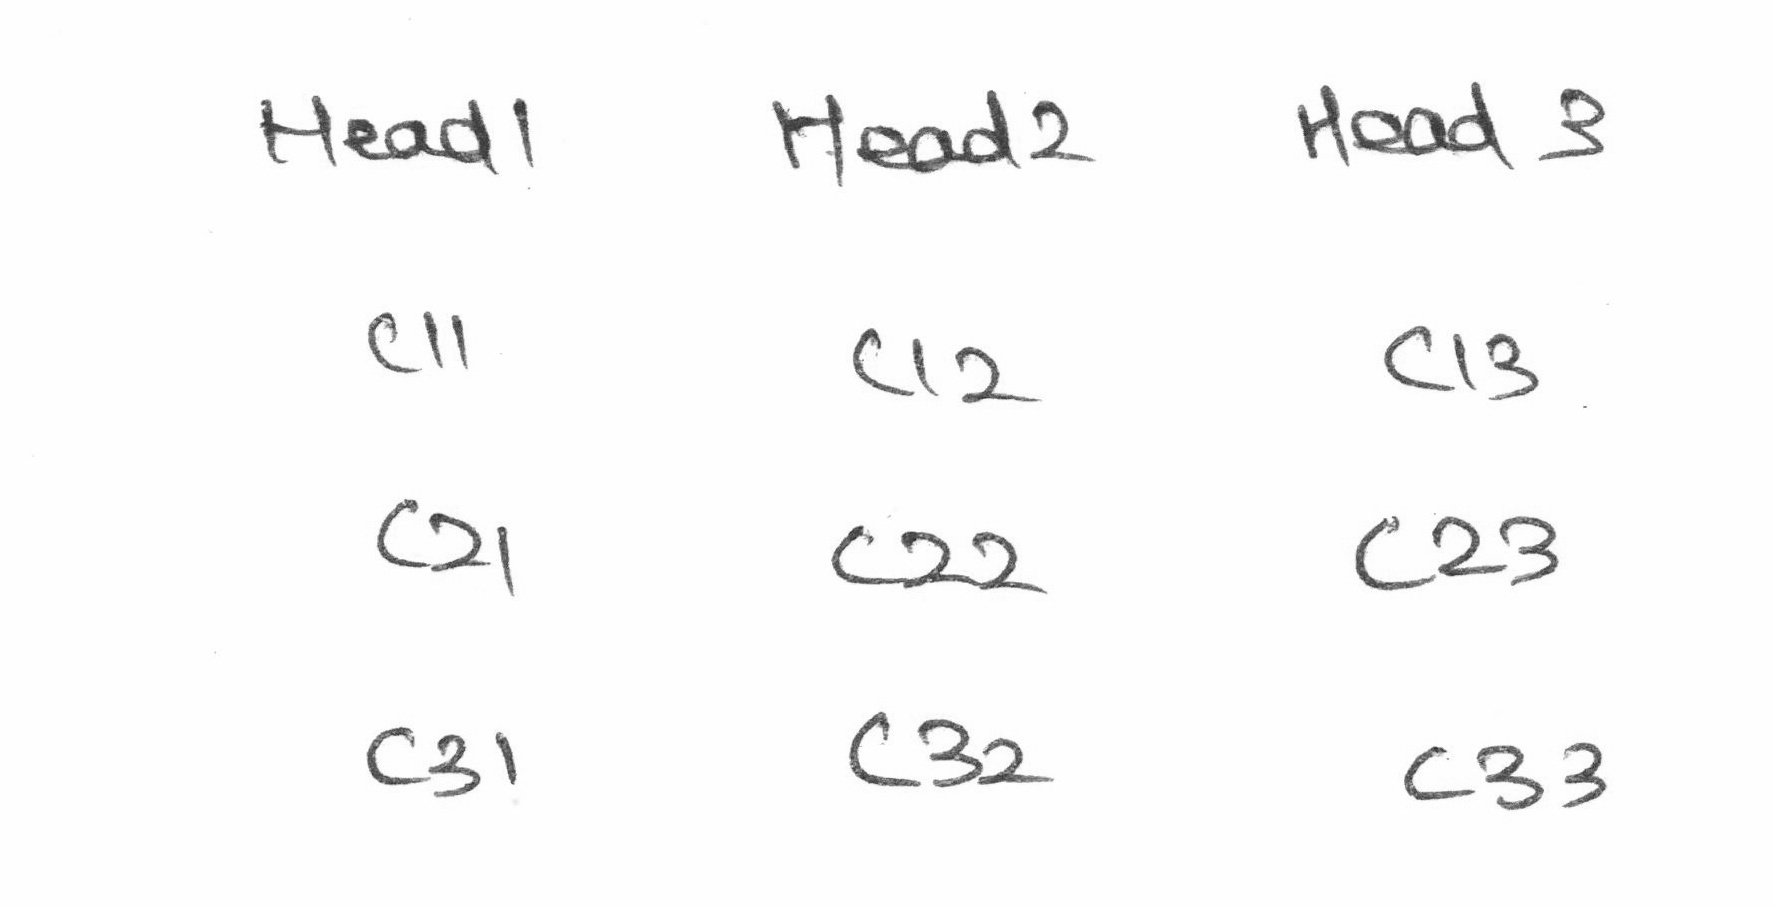 Head1 Head2 Head 3
C11 C12 C13
C21 C22 C23
C31 C32 C33